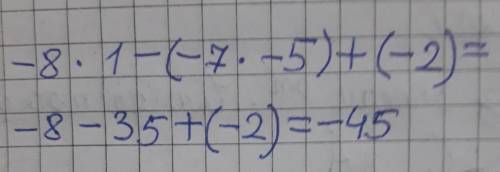 -8 · 1 - (-7 · -5) + (-2) =
-8 - 35 + (-2) = -45